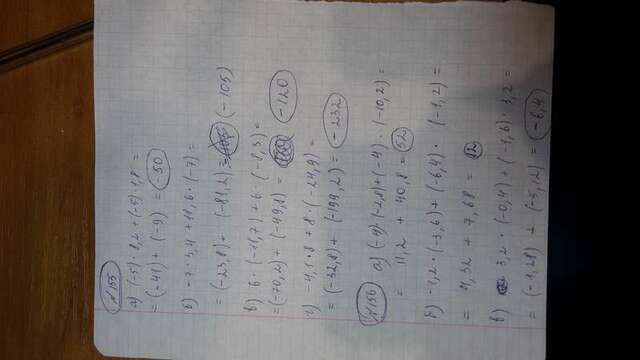 №155
а) (-5) · 8,2 + (-5) · 1,8 =
= (-41) + (-9) = -50
б) -7 · 3,4 + 11,6 · (-7) =
= (-23,8) + (-81,2) = (-105)
в) 6 · (-11,7) + 6 · (-8,3) =
= (-70,2) + (-49,8) = -120
г) -4,1 · 8 + 8 · (-24,9) =
= (-32,8) + (-199,2) = -232
а) (-4) · (-2,8) + (-4) · (-10,2) =
= 11,2 + 40,8 = 52
б) -1,2 · (-3,6) + (-6,4) · (-1,2) =
= 4,32 + 7,68 = 12
в) 3,2 · (-0,4) + (-1,6) · 3,2 =
= (-1,28) + (-5,12) = -6,4